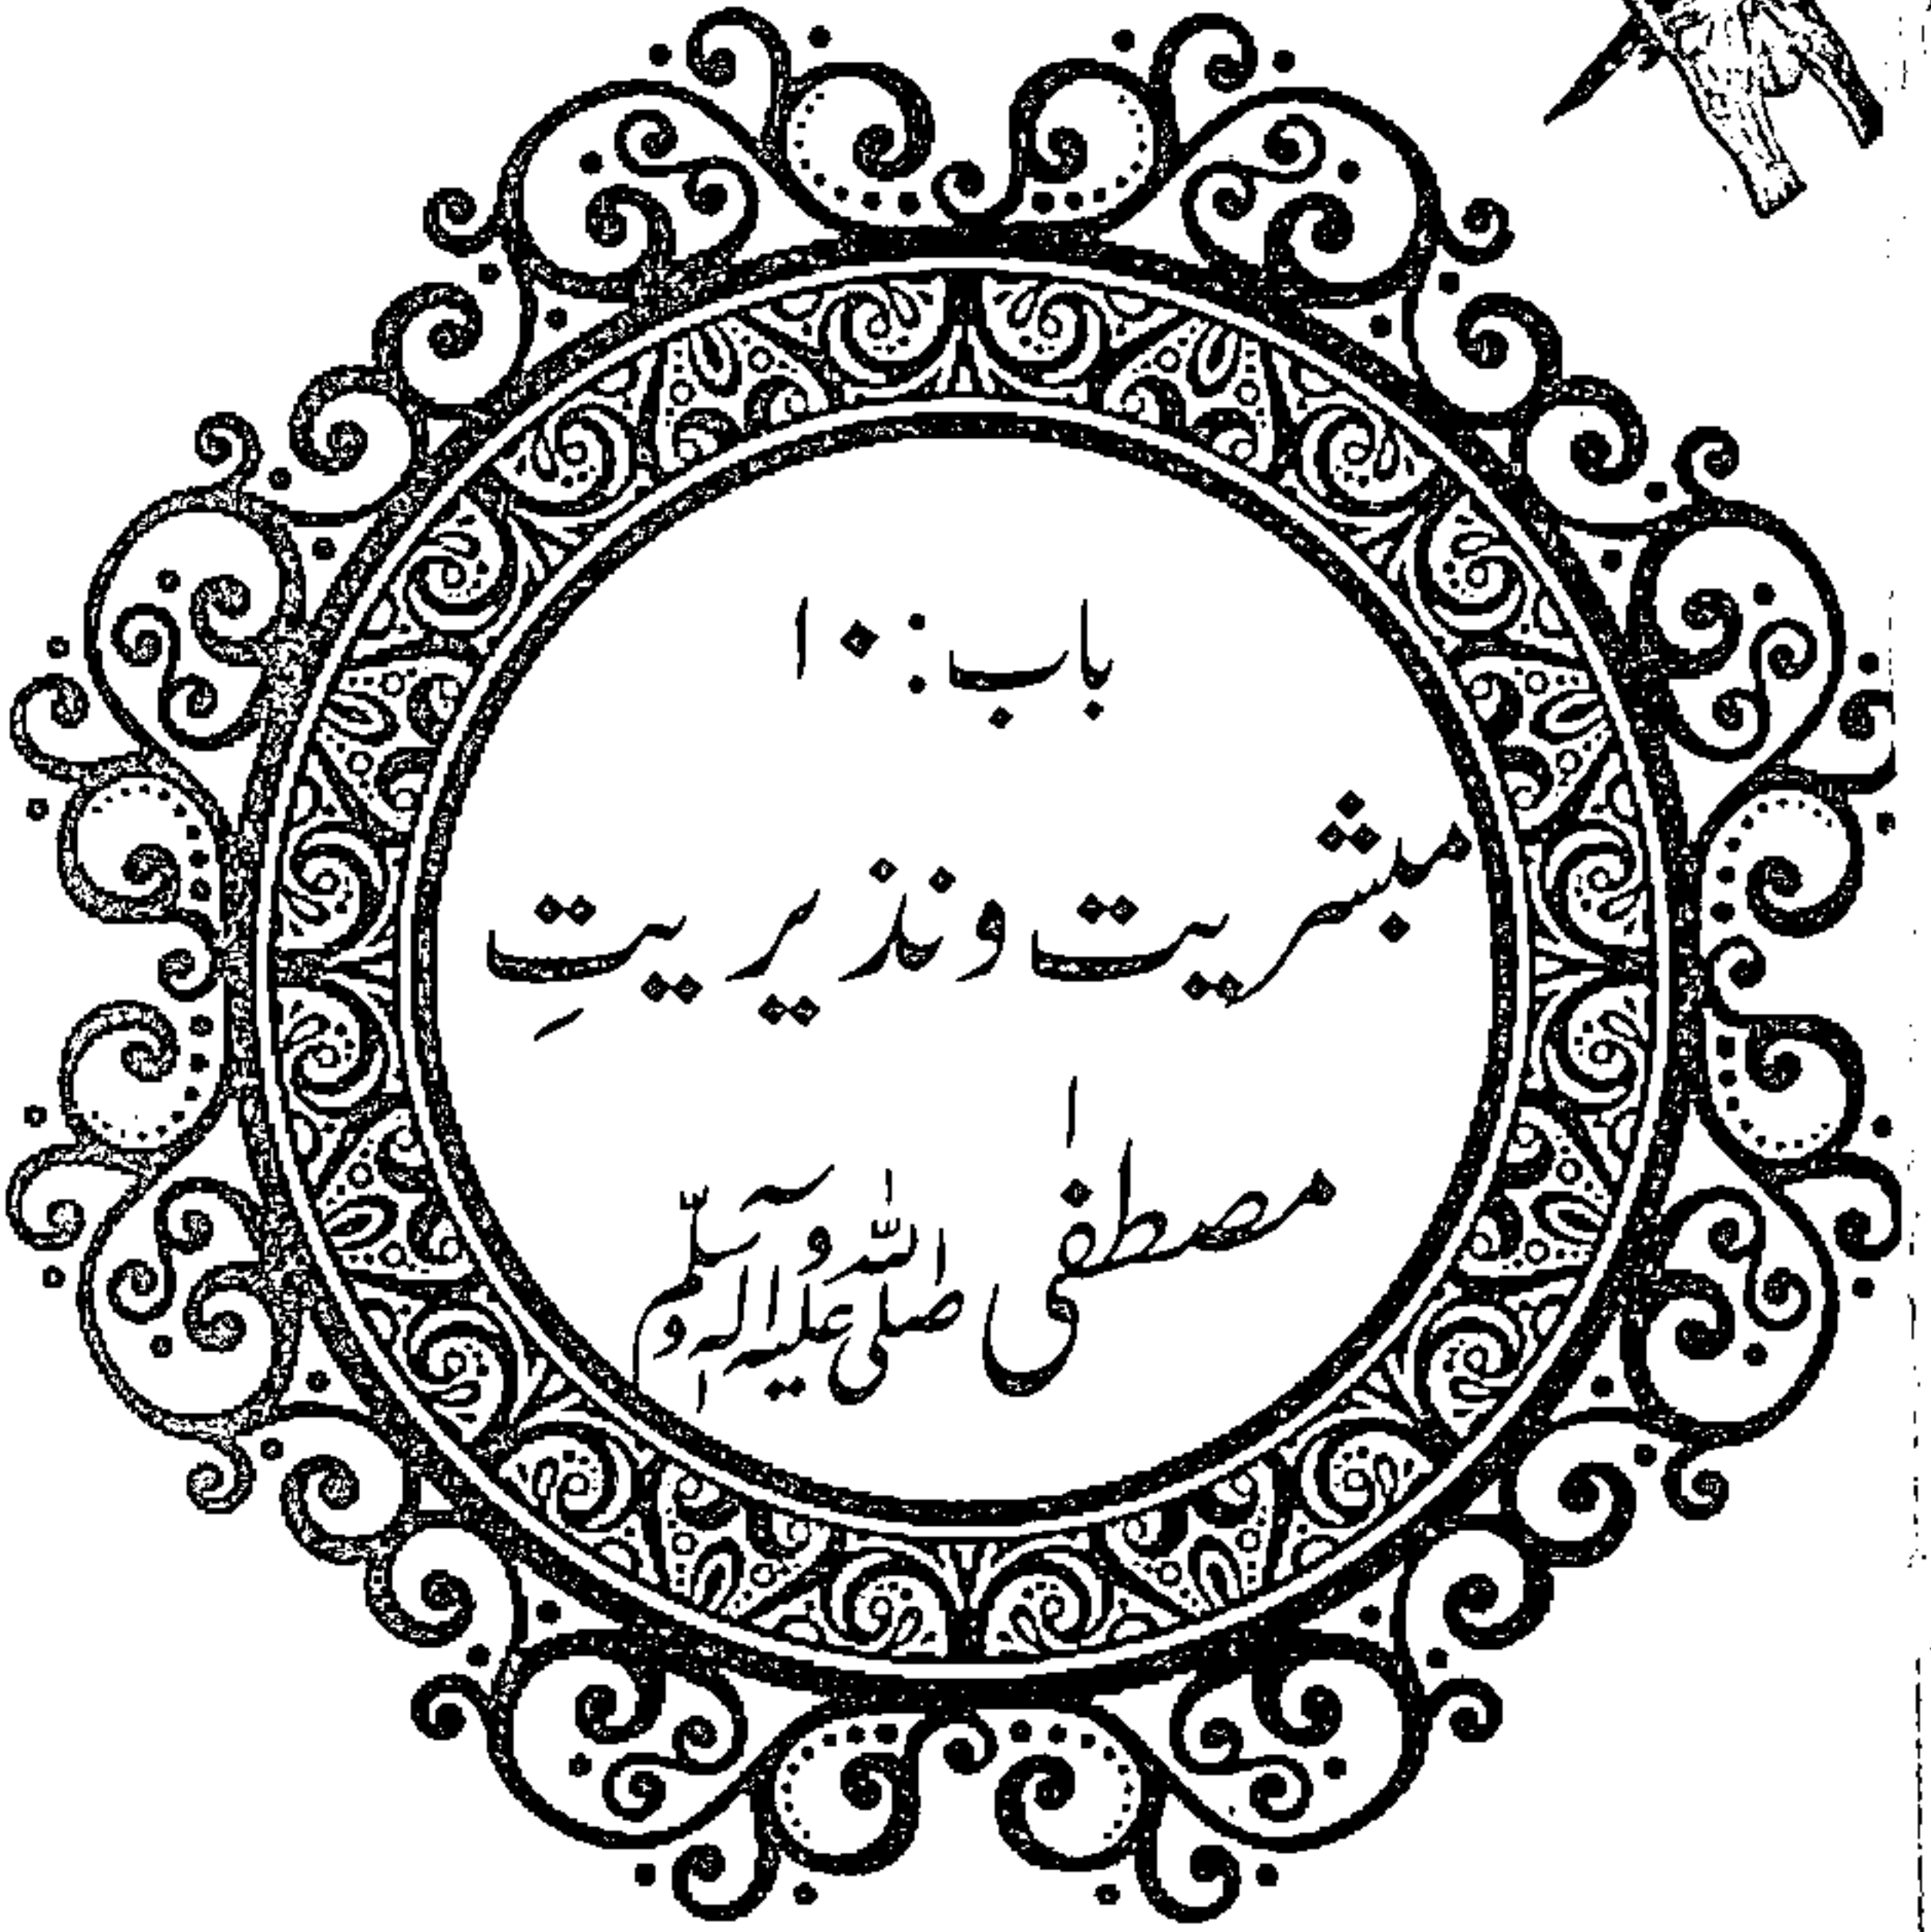 باب: ۱۰
مبشریت و نذیریتِ
مصطفٰی صلی اللہ علیہ وآلہ وسلم